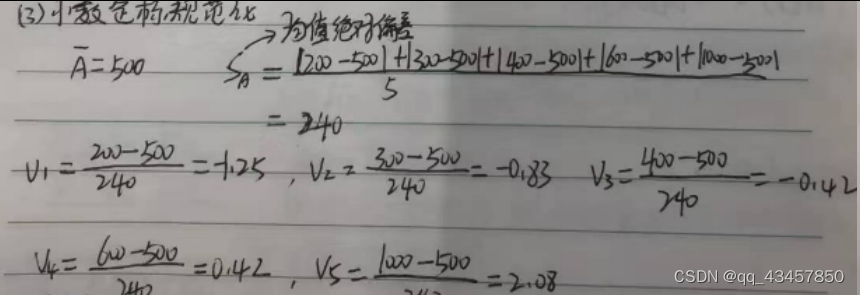 (3)小数定标规范化
→均值绝对偏差
Ā=500 S_A = |200-500|+|300-500|+|400-500|+|600-500|+|1000-500| / 5
= 240
V₁ = 200-500 / 240 = -1.25 , V₂ = 300-500 / 240 = -0.83 V₃ = 400-500 / 240 = -0.42
V₄ = 600-500 / 240 = 0.42 , V₅ = 1000-500 / 240 = 2.08
CSDN @qq_43457850